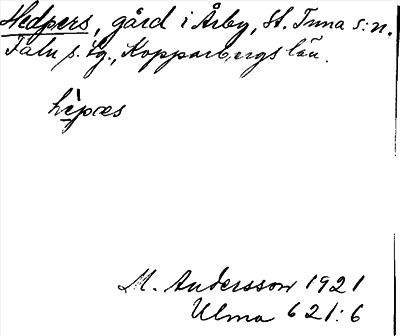 Hedpers, gård i Årby, St. Tuna s:n.
Falu s. tg., Kopparbergs län.
hèpæs
M. Andersson 1921
Ulma 621:6